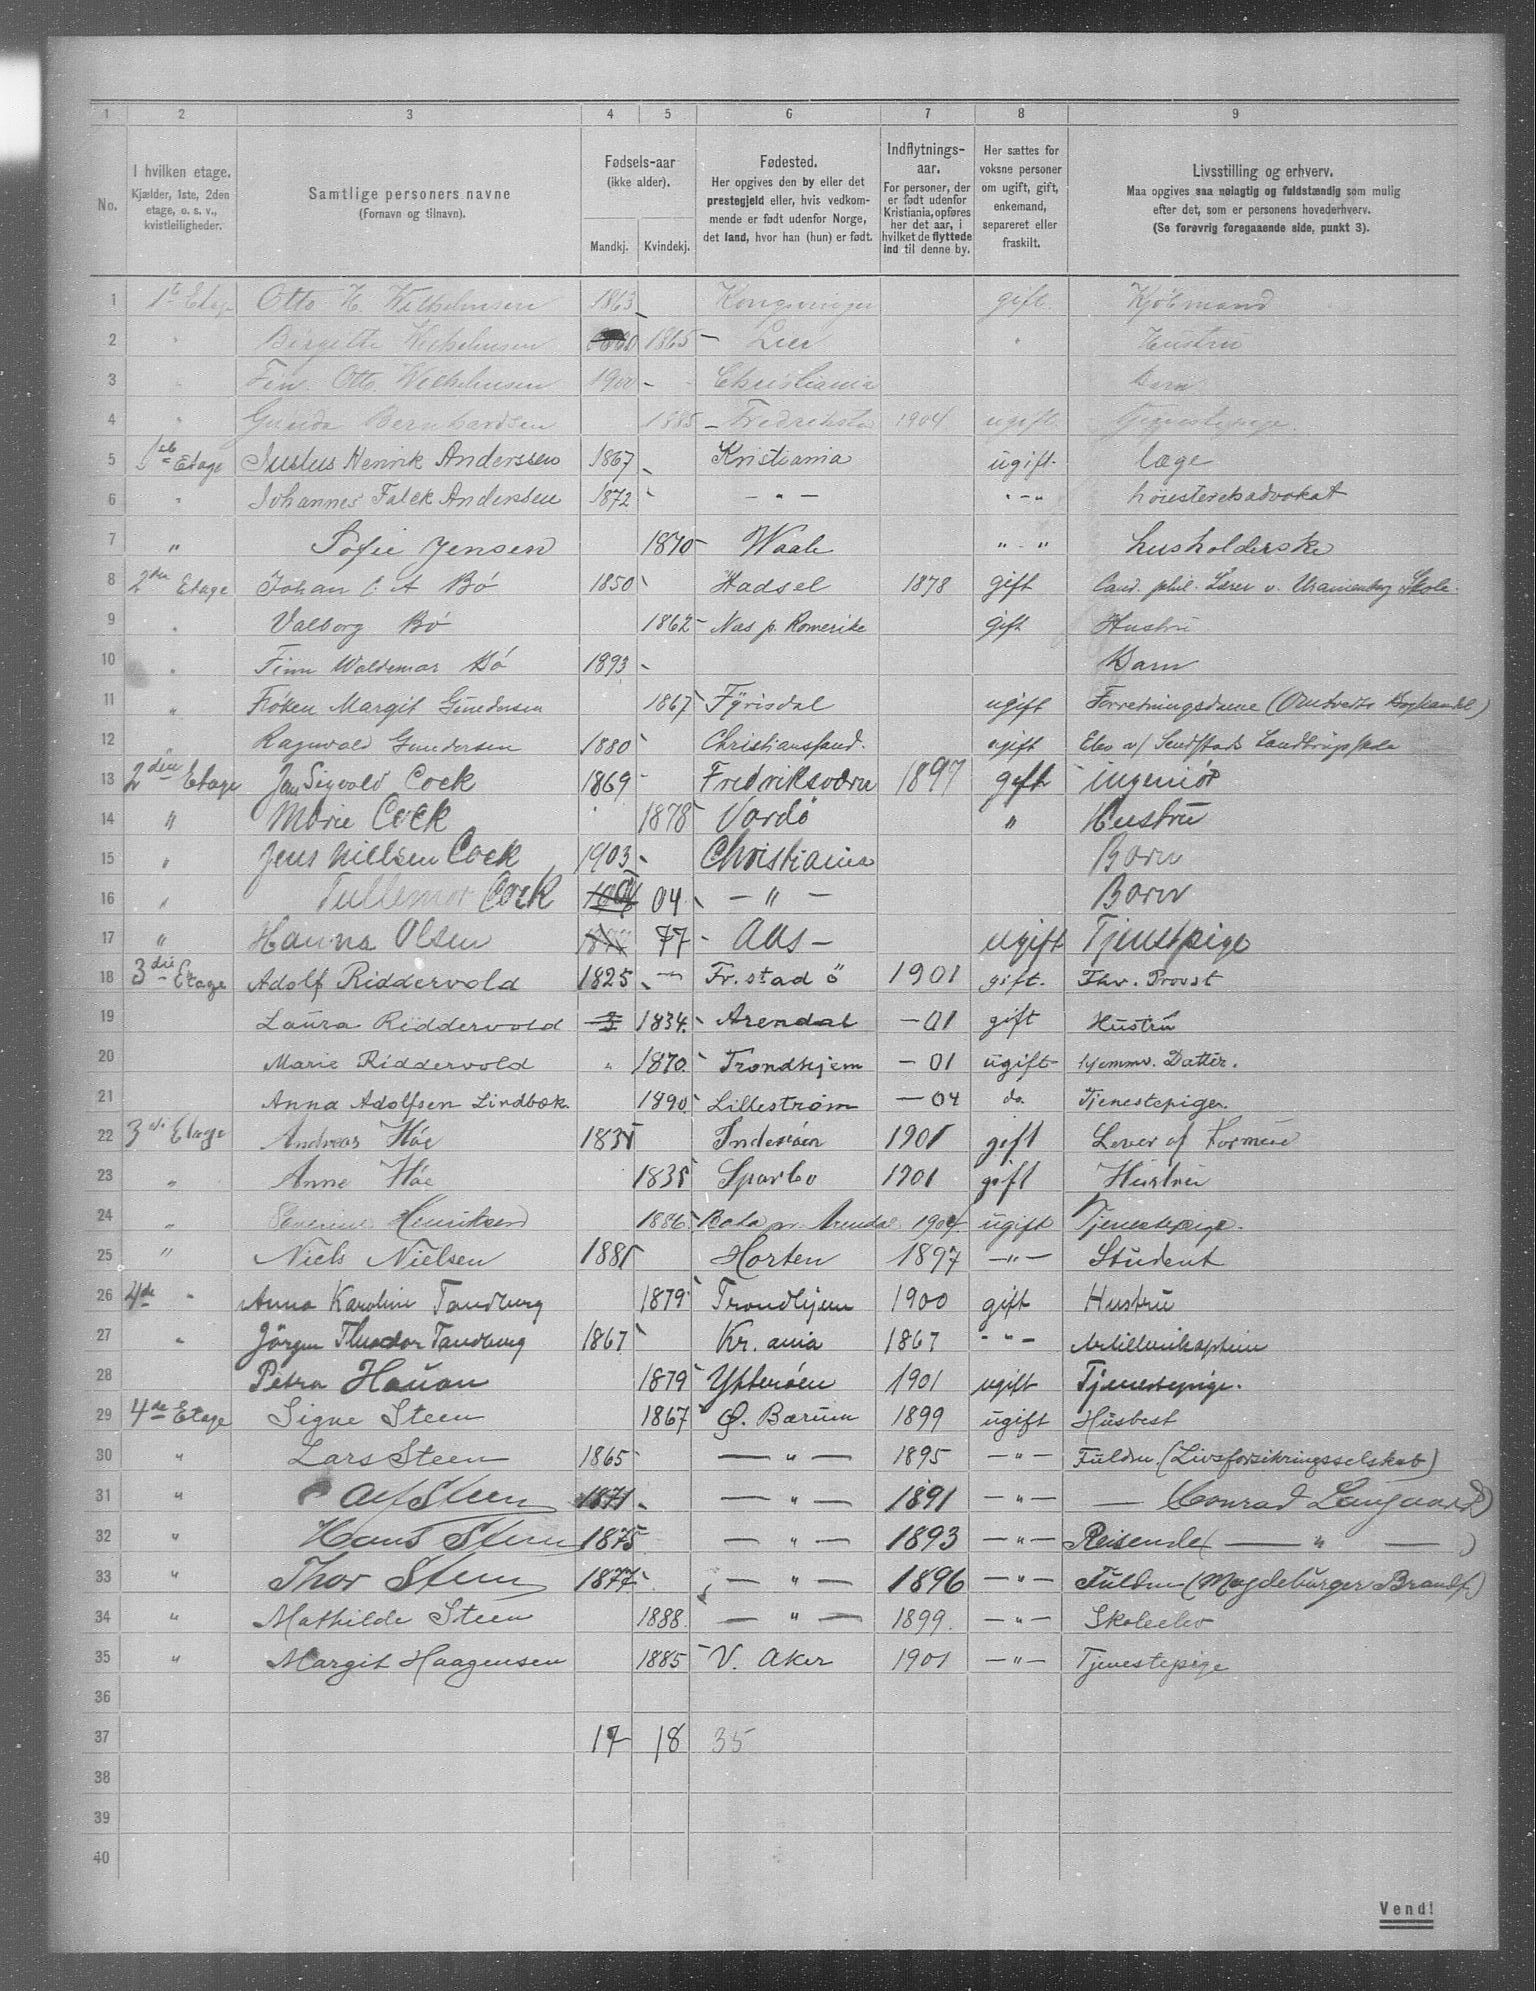 1 2 3 4 5 6 7 8 9
No. I hvilken etage. Kjælder, 1ste, 2den etage, o. s. v., kvistleiligheder. Samtlige personers navne (Fornavn og tilnavn). Fødsels-aar (ikke alder). Mandkj. Kvindekj. Fødested. Her opgives den by eller det prestegjeld eller, hvis vedkommende er født udenfor Norge, det land, hvor han (hun) er født. Indflytnings-aar. For personer, der er født udenfor Kristiania, opføres her det aar, i hvilket de flyttede ind til denne by. Her sættes for voksne personer om ugift, gift, enkemand, separeret eller fraskilt. Livsstilling og erhverv. Maa opgives saa nøiagtig og fuldstændig som mulig efter det, som er personens hovederhverv. (Se forøvrig foregaaende side, punkt 3).
1 1ste Etage Otto H. Wilhelmsen 1863 Kongsvinger gift Kjöbmand
2 " Birgitte Wilhelmsen 1865 - Lier " Hustru
3 " Finn Otto Wilhelmsen 1900 - Christiania Barn
4 " Gunda Bernhardsen 1885 - Fredrikstad 1904 ugift Tjenestepige.
5 1ste Etage Justus Henrik Anderssen 1867 Kristiania ugift. læge
6 " Johannes Falck Anderssen 1872 - " - " - " høiesteretsadvokat
7 " Sofie Jensen 1870 Waale " - " husholderske
8 2den Etage Johan C. A Bö 1850 Hadsel 1878 gift Cand. phil. Lærer v. Uranienborg Skole.
9 " Valborg Bö 1862 Næs p. Romerike gift Hustru
10 " Finn Waldemar Bö 1893 Barn
11 " Frøken Margit Gundersen 1867 Fyrisdal ugift Forretningsdame (Omtvedts Boghandel)
12 " Ragnvald Gundersen 1880 Christianssand. ugift Elev v/ Sendstads Landbrugsskole
13 2den Etage Jens Sigvald Cock 1869 Fredriksværn 1897 gift ingeniör
14 " Marie Cock 1878 Vardö " Hustru
15 " Jens Nielsen Cock 1903 Christiania Barn
16 " Tullemor Cock 04 - " - Barn
17 " Hanna Olsen 77 - Aas - ugift Tjenestpige
18 3die Etage Adolf Riddervold 1825 Fr.stad ö 1901 gift. Fhv. Provst
19 Laura Riddervold 1834. Arendal - 01 gift Hustru
20 Marie Riddervold " 1870. Trondhjem - 01 ugift hjemmv. Datter.
21 Anna Adolfsen Lindbæk. 1890 Lilleström - 04 do. Tjenestepige.
22 3die Etage Andreas Höe 1835 Inderöen 1901 gift Lever af Formue
23 " Anne Höe 1835 Sparbo 1901 gift Hustru
24 " Severine Henriksen 1886 pr. Arendal 1904. ugift Tjenestepige.
25 " Niels Nielsen 1881 Horten 1897 - " - Student
26 4de " Anna Karoline Tandberg 1879 Trondhjem 1900 gift Hustru
27 " Jörgen Theodor Tandberg 1867 Kr.ania 1867 - " - Artillerikaptein
28 Petra Hauan 1879 Ytteröen 1901 ugift Tjenestepige.
29 4de Etage Signe Steen 1867 Ø. Bærum 1899 ugift Husbest
30 " Lars Steen 1865 - " - 1895 - " - Fuldm. (Livsforsikringsselskab)
31 " Alf Steen 1871 - " - 1891 - " - - (Conrad Langaard)
32 " Hans Steen 1875 - " - 1893 - " - Reisende ( - " - )
33 " Thor Steen 1877 - " - 1896 - " - Fuldm (Magdeburger Brandf.)
34 " Mathilde Steen 1888. - " - 1899. - " - Skoleelev
35 " Margit Haagensen 1885 V. Aker 1901 - " - Tjenestepige
36
37 17 18 35
38
39
40
Vend!